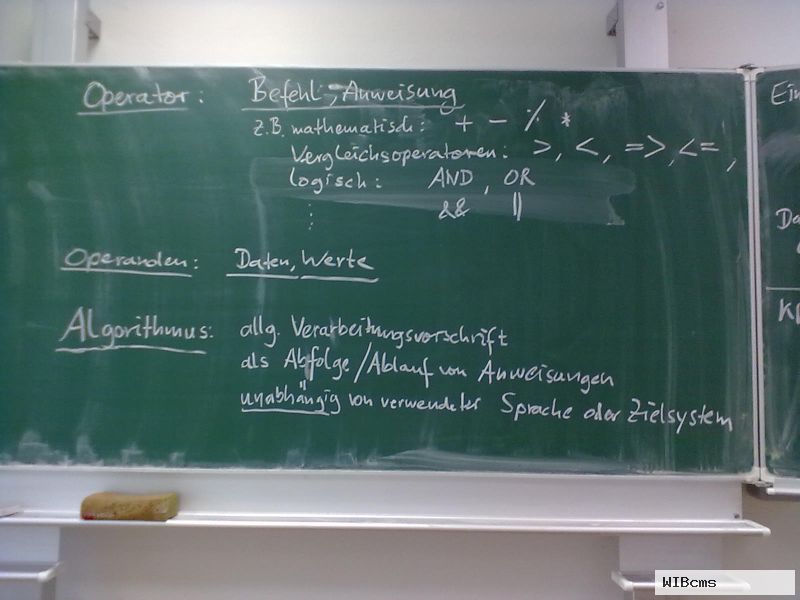 Operator: Befehl, Anweisung
z.B. mathematisch: + - % *
Vergleichsoperatoren: >, <, =>, <=,
logisch: AND, OR
&& ||
Operanden: Daten, Werte
Algorithmus: allg. Verarbeitungsvorschrift
als Abfolge/Ablauf von Anweisungen
unabhängig von verwendeter Sprache oder Zielsystem
Ein
Da
WIBcms